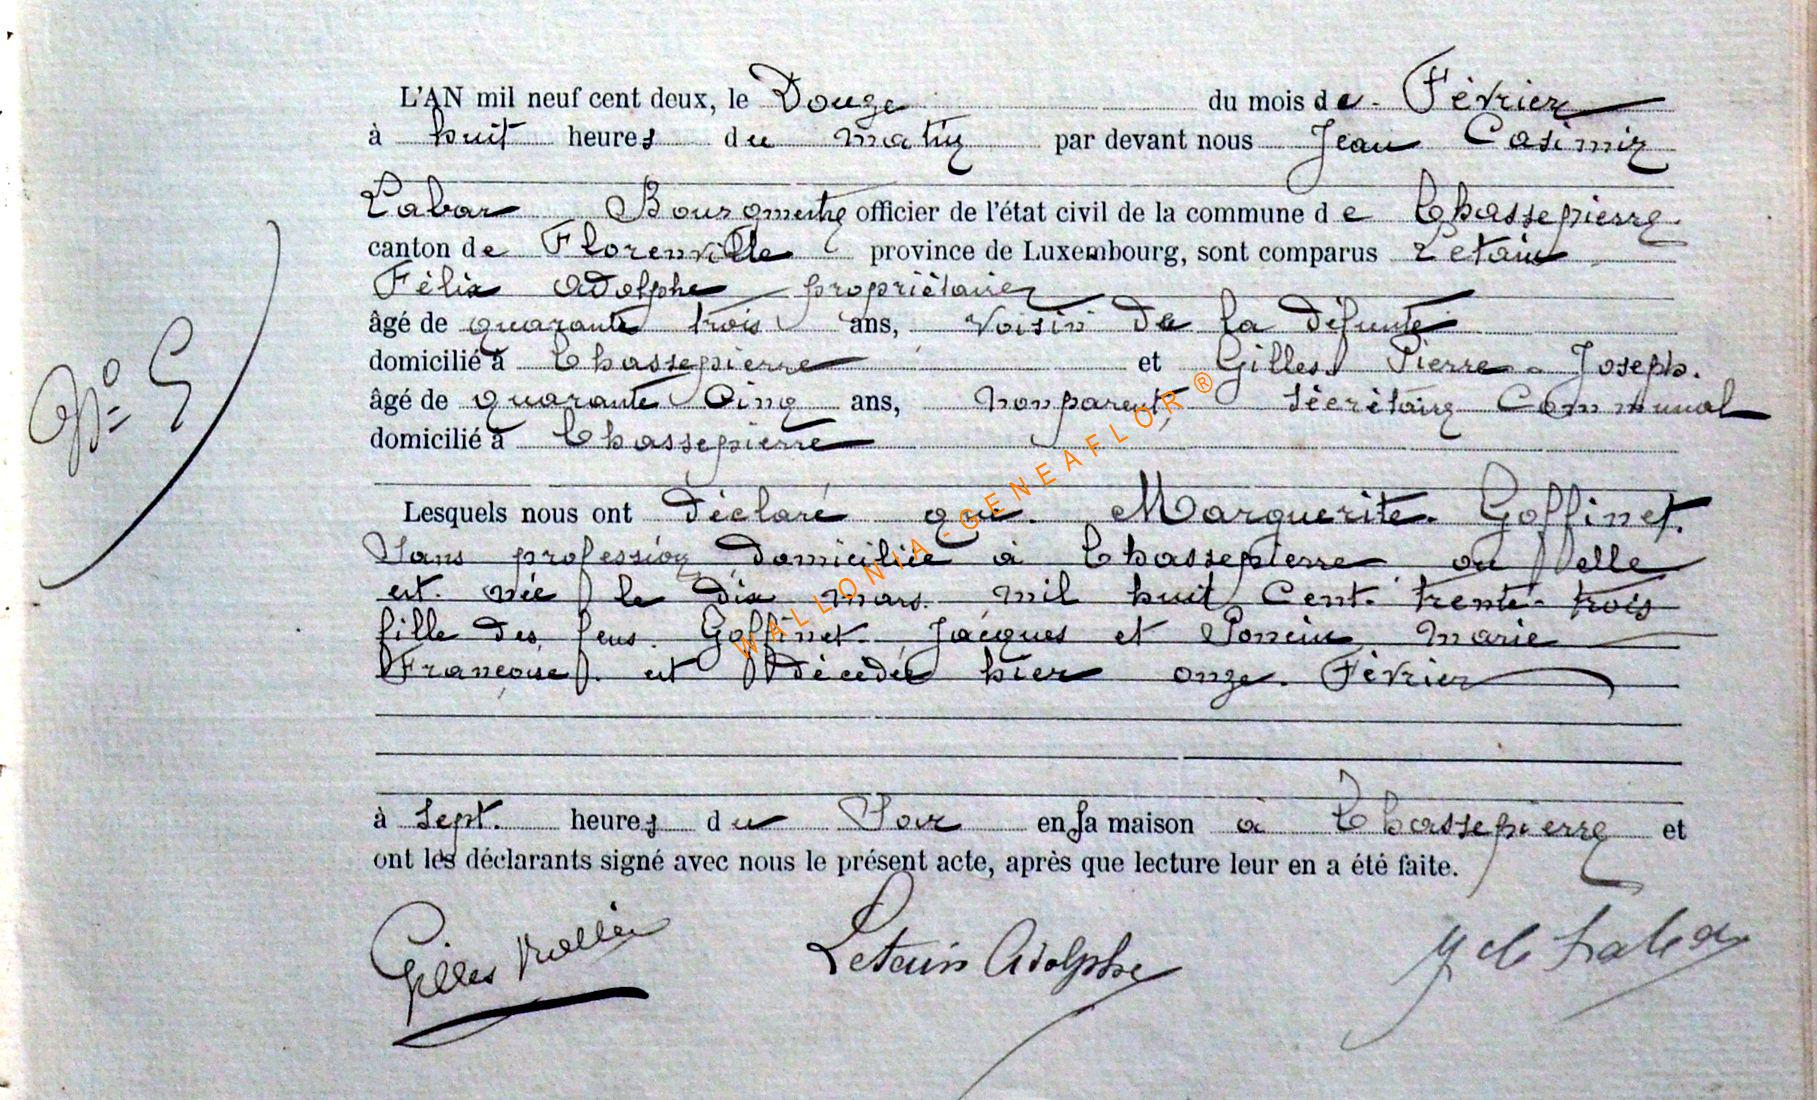 L'AN mil neuf cent deux, le Douze du mois de Février
à huit heures du matin par devant nous Jean Casimir
Labar Bourgmestre officier de l'état civil de la commune de Chassepierre
canton de Florenville province de Luxembourg, sont comparus Letain
Félix Adolphe propriétaire
âgé de quarante trois ans, Voisin de la défunte
domicilié à Chassepierre et Gilles Pierre-Joseph.
âgé de quarante Cinq ans, non parent, sécrétaire Communal
domicilié à Chassepierre
N° 5
Lesquels nous ont déclaré que Marguerite Goffinet.
Sans profession domiciliée à Chassepierre où elle
est née le dix mars mil huit Cent trente-trois
fille des feus Goffinet Jacques et Poncin Marie
Françoise est décédée hier onze Février
à sept heures du Soir en sa maison à Chassepierre et
ont les déclarants signé avec nous le présent acte, après que lecture leur en a été faite.
Gilles Letain Adolphe
WALLONIA-GENEAFLOR®